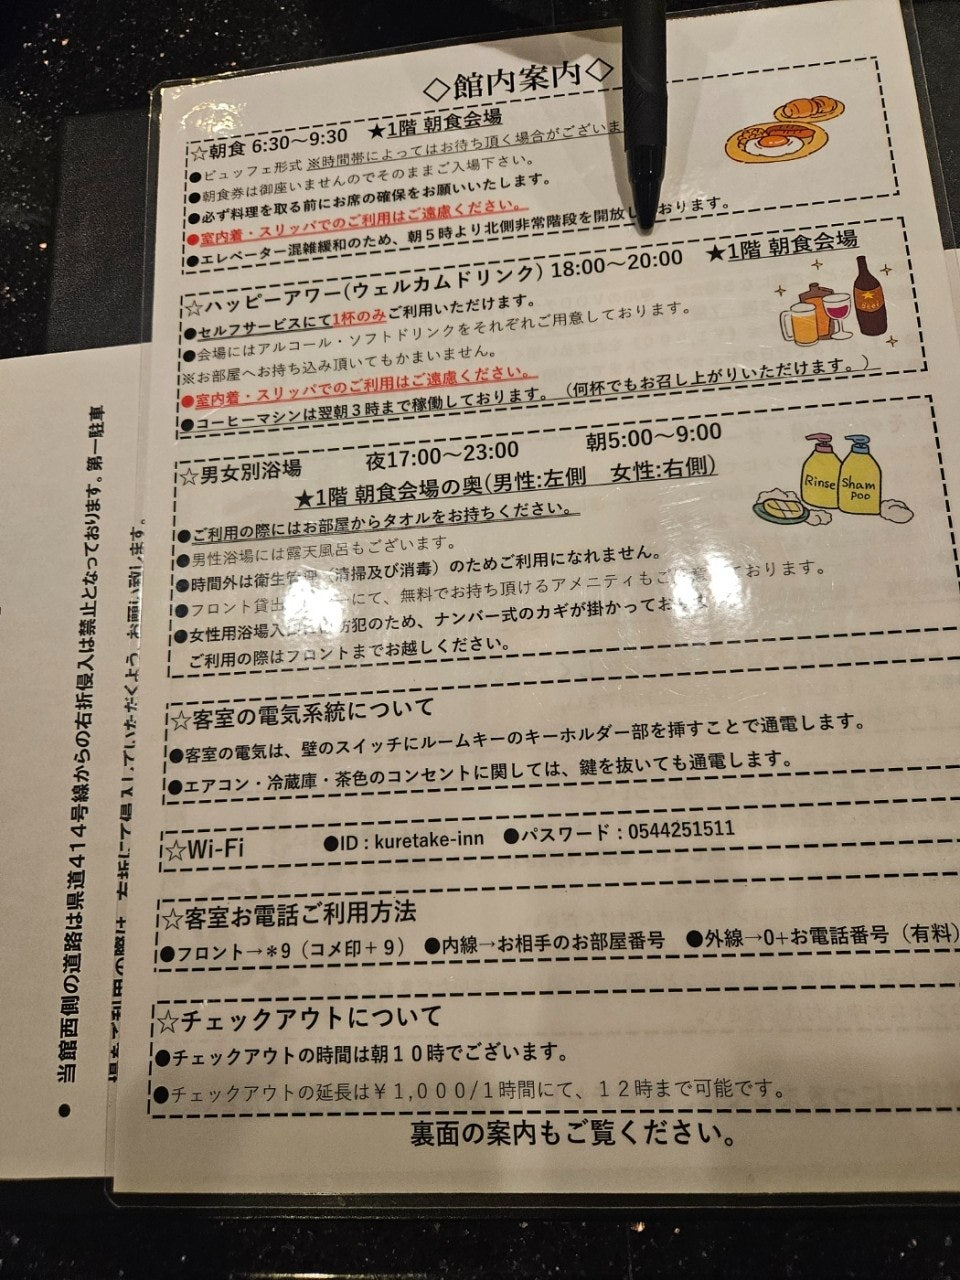 ◇館内案内◇
☆朝食 6:30～9:30 ★1階 朝食会場
●ビュッフェ形式 ※時間帯によってはお待ち頂く場合がございま
●朝食券は御座いませんのでそのままご入場下さい。
●必ず料理を取る前にお席の確保をお願いいたします。
●室内着・スリッパでのご利用はご遠慮ください。
●エレベーター混雑緩和のため、朝５時より北側非常階段を開放し おります。
☆ハッピーアワー(ウェルカムドリンク) 18:00～20:00 ★1階 朝食会場
●セルフサービスにて1杯のみご利用いただけます。
●会場にはアルコール・ソフトドリンクをそれぞれご用意しております。
※お部屋へお持ち込み頂いてもかまいません。
●室内着・スリッパでのご利用はご遠慮ください。
●コーヒーマシンは翌朝３時まで稼働しております。（何杯でもお召し上がりいただけます。）
☆男女別浴場 夜17:00～23:00 朝5:00～9:00
Rinse
Sham
poo
★1階 朝食会場の奥(男性:左側 女性:右側)
●ご利用の際にはお部屋からタオルをお持ちください。
●男性浴場には露天風呂もございます。
●時間外は衛生管理（清掃及び消毒）のためご利用になれません。
●フロント貸出 にて、無料でお持ち頂けるアメニティもご おります。
●女性用浴場入 防犯のため、ナンバー式のカギが掛かってお
ご利用の際はフロントまでお越しください。
☆客室の電気系統について
●客室の電気は、壁のスイッチにルームキーのキーホルダー部を挿すことで通電します。
●エアコン・冷蔵庫・茶色のコンセントに関しては、鍵を抜いても通電します。
☆Wi-Fi ●ID : kuretake-inn ●パスワード : 0544251511
☆客室お電話ご利用方法
●フロント→＊9（コメ印＋９） ●内線→お相手のお部屋番号 ●外線→0+お電話番号（有料）
☆チェックアウトについて
●チェックアウトの時間は朝１０時でございます。
●チェックアウトの延長は￥１,０００/１時間にて、１２時まで可能です。
裏面の案内もご覧ください。
● 当館西側の道路は県道４１４号線からの右折侵入は禁止となっております。第一駐車